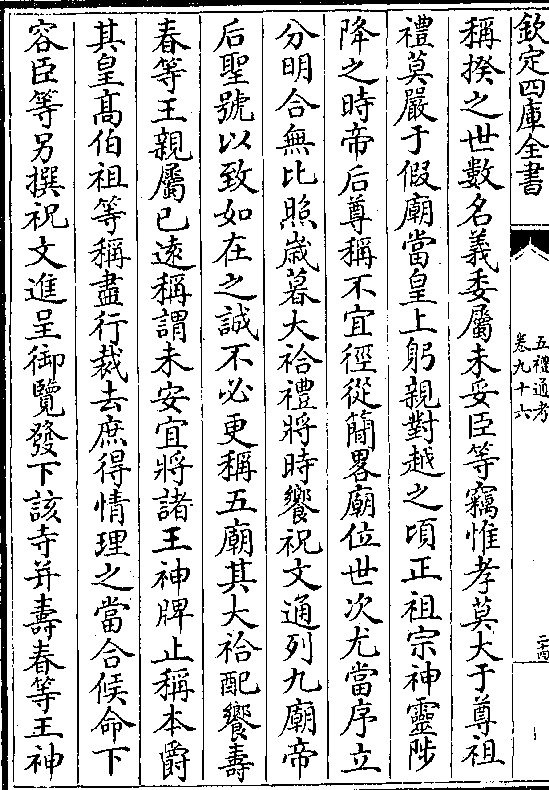 欽定四庫全書
五禮通考
卷九十六
二十四
稱揆之世數名義委屬未妥臣等竊惟孝莫大于尊祖
禮莫嚴于假廟當皇上躬親對越之頃正祖宗神靈陟
降之時帝后尊稱不宜徑從簡畧廟位世次尤當序立
分明合無比照歲暮大祫禮將時饗祝文通列九廟帝
后聖號以致如在之誠不必更稱五廟其大祫配饗壽
春等王親屬已遠稱謂未安宜將諸王神牌止稱本爵
其皇髙伯祖等稱盡行裁去庶得情理之當合候命下
容臣等另撰祝文進呈御覽發下該寺并壽春等王神